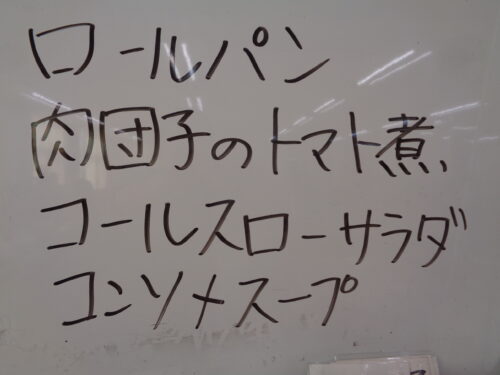 ロールパン
肉団子のトマト煮
コールスローサラダ
コンソメスープ